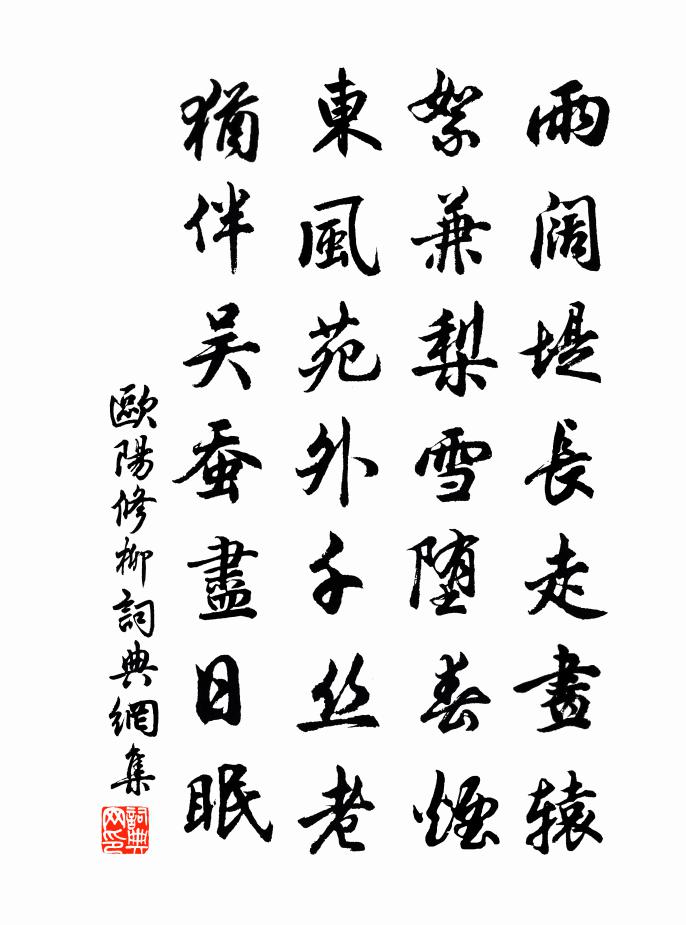 雨阔堤長走畫辕
絮兼梨雪堕春煙
東風苑外千丝老
猶伴吴蚕盡日眠
歐陽修柳詞典網集
詞典网印